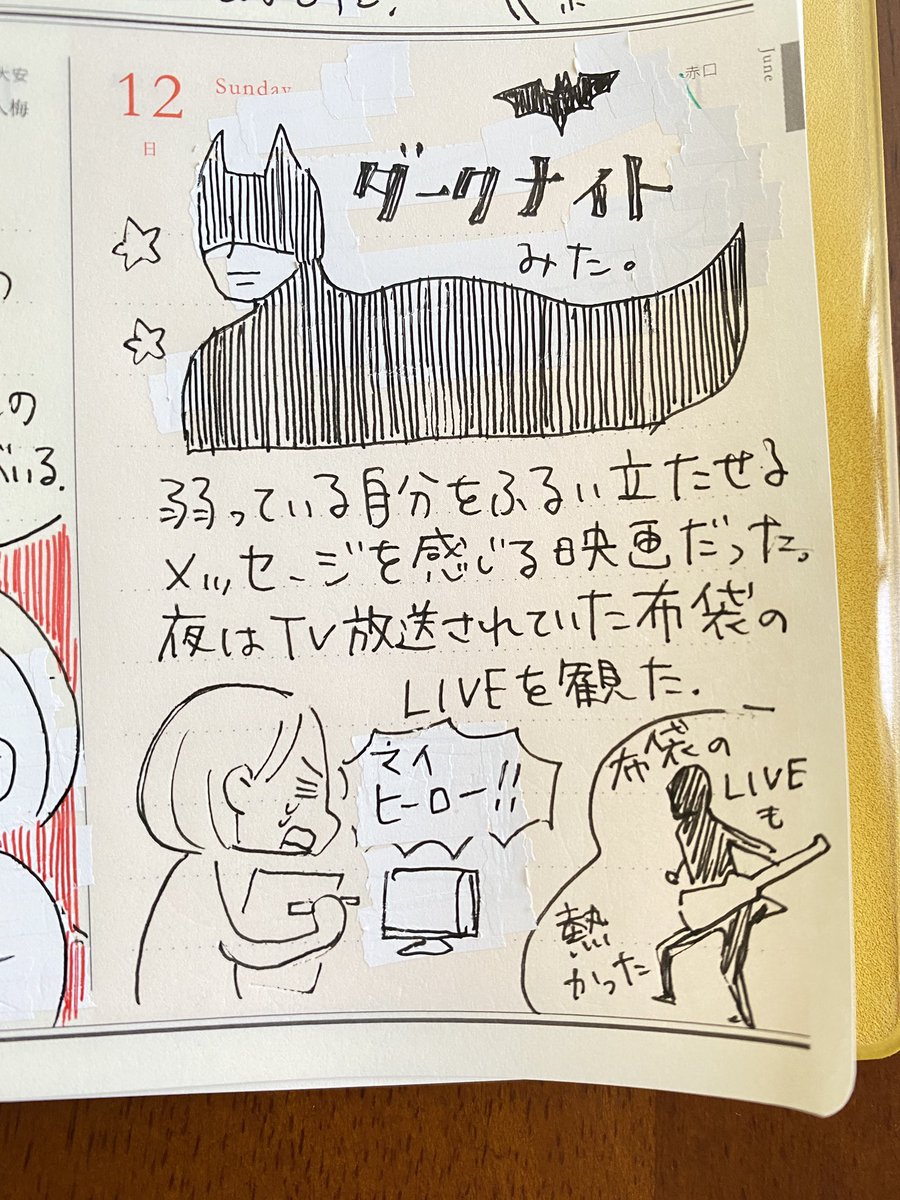 12
Sunday
日
赤口
June
大安
ダークナイト
みた。
弱っている自分をふるい立たせる
メッセージを感じる映画だった。
夜はTV放送されていた布袋の
LIVEを観た.
マイ
ヒーロー!!
布袋の
LIVE
も
熱
かった
の
いる.